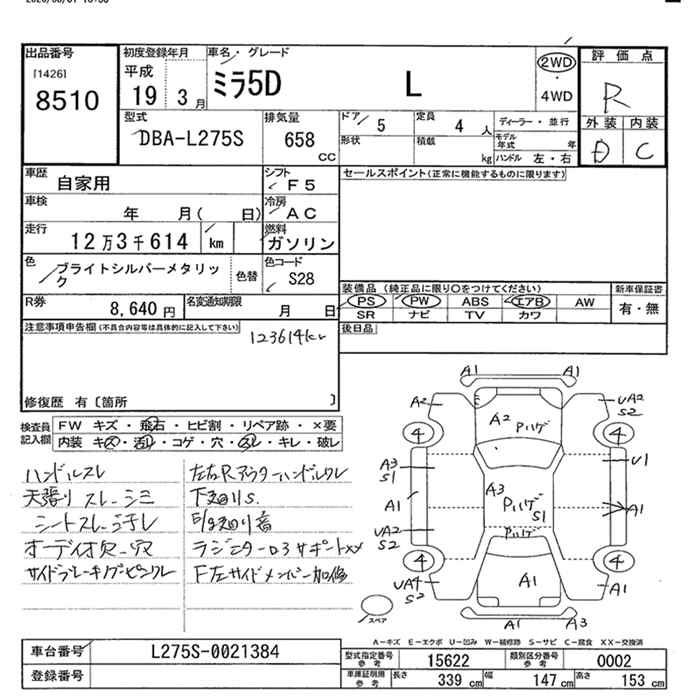 出品番号
[1426]
8510
初度登録年月
平成
19 3月
車名・グレード
ミラ5D L
2WD
・
4WD
評価点
R
外装 内装
D C
型式
DBA-L275S
排気量
658
cc
ドア 5
形状
定員 4 人
積載 kg
ディーラー・並行
モデル年式 年
ハンドル 左・右
車歴
自家用
シフト
F5
セールスポイント(正常に機能するものに限ります)
車検
年 月( 日)
冷房
AC
走行
12万3千614 km
燃料
ガソリン
色
ブライトシルバーメタリック
色替
色コード
S28
R券
8,640円
名変通知期限
月 日
装備品(純正品に限り○をつけてください)
PS PW ABS エアB AW
SR ナビ TV カワ
新車保証書
有・無
後日品
注意事項申告欄(不具合内容等は具体的に記入して下さい)
123614km
修復歴 有〔箇所 〕
検査員記入欄
FW キズ・飛石・ヒビ割・リペア跡・×要
内装 キズ・汚れ・コゲ・穴・スレ・キレ・破レ
ハンドルスレ
天張り スレ、シミ
シートスレ、汚レ
オーディオ欠、穴
左右Rアウターハンドルワレ
下廻りS.
ラジエターロアサポートXX
F左サイドメンバー加修
A1 A1
A2 UA2
S2
A2 Pハゲ
4 4
A3
S1
U1
A1
A3
Pハゲ
S1
A1
UA2
S2
Pハゲ
4 4
UA4
S2
A1
A1
A1 A3
スペア
A-キズ E-エクボ U-凹み W-補修跡 S-サビ C-腐食 XX-交換済
車台番号
L275S-0021384
登録番号
型式指定番号
参考
15622
類別区分番号
参考
0002
車庫証明用
参考
長さ 339 cm
幅 147 cm
高さ 153 cm